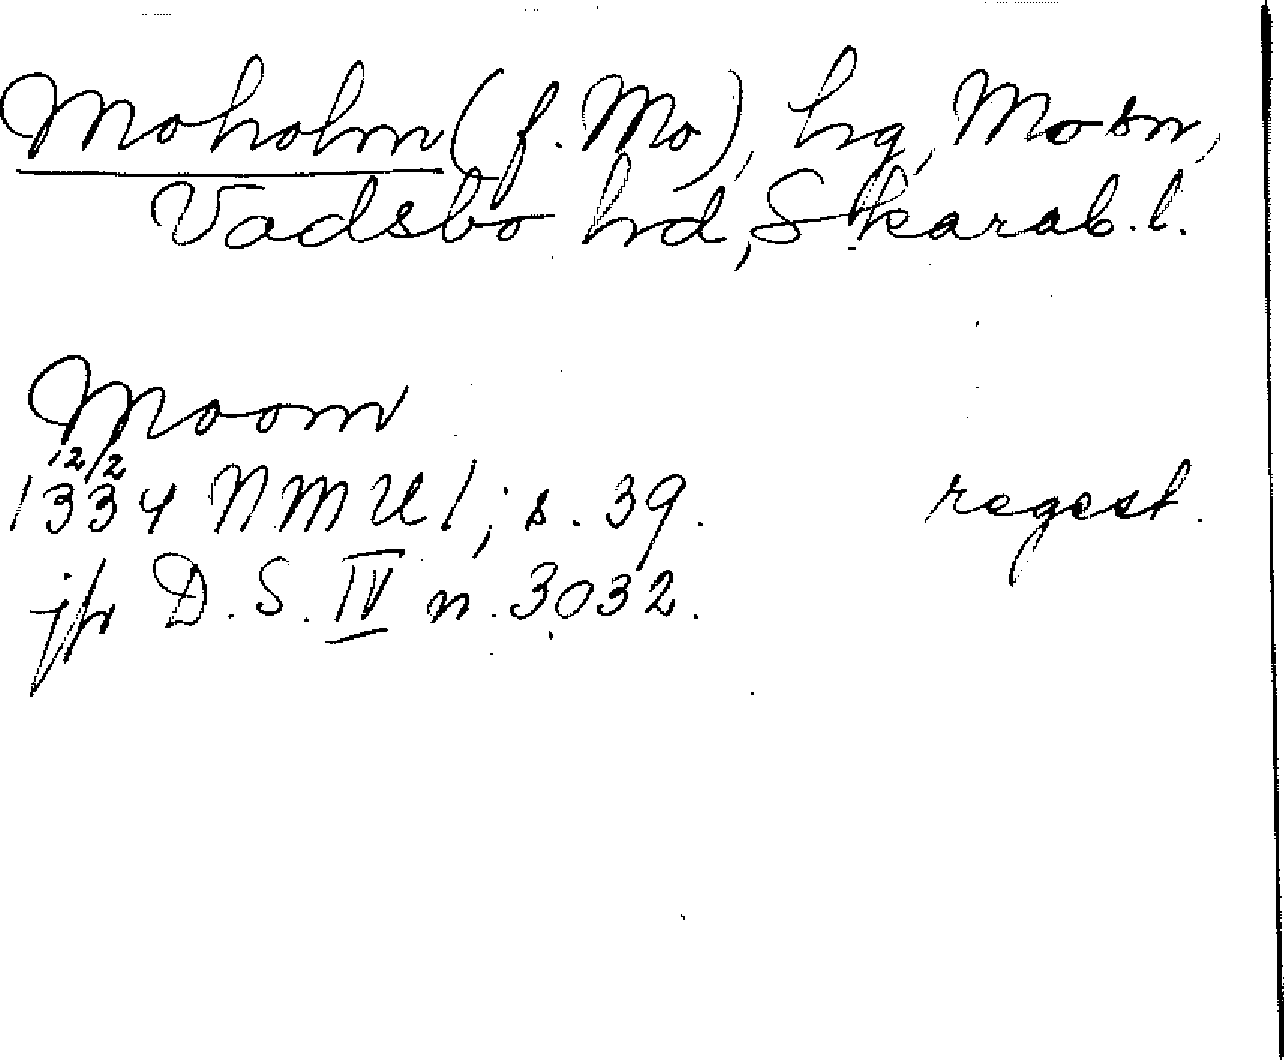 Moholm (f. Mo), hg, Mo sn,
Vadsbo hd, Skarab. l.
Moom
12/2
1334 NMU 1, s. 39. regest.
jfr D. S. IV n. 3032.